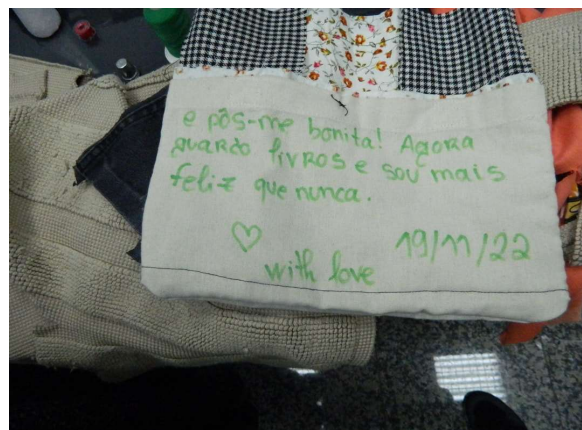 e pôs-me bonita! Agora
guardo livros e sou mais
feliz que nunca.
♡ 19/11/22
with love